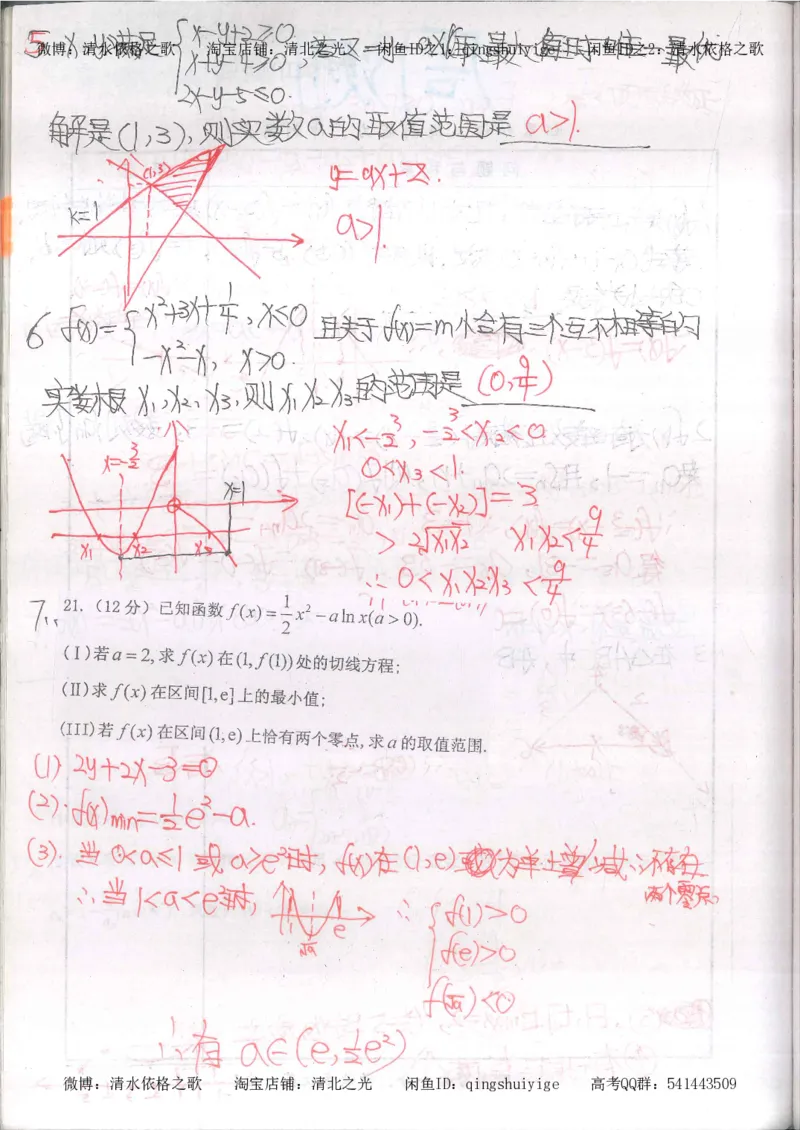 5. x,y满足{x-y+2≥0
x+y-4≥0
2x-y-5≤0.
微博：清水依格之歌 淘宝店铺：清北之光 闲鱼ID之1：qingshuiyige 闲鱼ID之2：清水依格之歌
解是(1,3),则实数a的取值范围是 a>1.
(1,3)
k=1
y=ax+z.
a>1.
6 f(x)={x²+3x+1/4, x≤0
-x²-x, x>0.
且关于f(x)=m恰有三个互不相等的
实数根x₁,x₂,x₃,则x₁x₂x₃的范围是 (0,9/4)
x₁<-3/2, -3/2<x₂≤0
0<x₃<1.
[(-x₁)+(-x₂)]=3
>2√x₁x₂ x₁x₂<9/4
∴0<x₁x₂x₃<9/4
x=-3/2
x=1
x₁ x₂ x₃
7.
21.（12分）已知函数f(x)=1/2x²-alnx(a>0).
(Ⅰ)若a=2,求f(x)在(1,f(1))处的切线方程;
(Ⅱ)求f(x)在区间[1,e]上的最小值;
(III)若f(x)在区间(1,e)上恰有两个零点,求a的取值范围.
(1) 2y+2x-3=0
(2). f(x)min=1/2e²-a.
(3). 当0<a≤1或a>e²时, f(x)在(1,e)或为单增/减∴不存在
两个零点。
∴当1<a<e²时,
1 √a e
∴{f(1)>0
f(e)>0
f(√a)<0
∴有 a∈(e,1/2e²)
微博：清水依格之歌 淘宝店铺：清北之光 闲鱼ID：qingshuiyige 高考QQ群：541443509